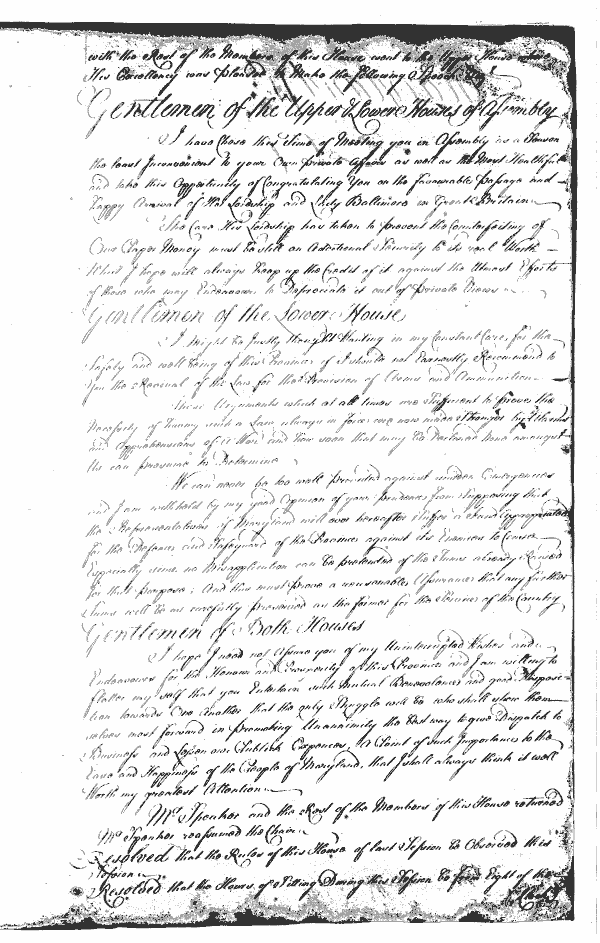 with the Rest of the Members of this House went to the Upper House where
His Excellency was pleased to Make the following Speech
Gentlemen of the Upper & Lower Houses of Assembly
I have Chose this Time of Meeting you in Assembly as a Season
the least Inconvenient to your Own private Affairs as well as the Most Healthfull
and take this Opportunity of Congratulating You on the favourable Passage and
happy Arrival of His Lordship and Lady Baltimore in Great Britain
The Care His Lordship has taken to prevent the Counterfeiting of
Our Paper Money must be still an Additional Security to its real Worth
Which I hope will always keep up the Credit of it against the Utmost Efforts
of those who may Endeavour to Depreciate it out of Private Views
Gentlemen of the Lower House
I might be Justly thought Wanting in my Constant Care for the
Safety and well being of this Province if I should not Earnestly Recommend to
You the Revival of the Law for the Provision of Arms and Ammunition
Those Arguments which at all times are Sufficient to prove the
Necessity of having such a Law always in force are now made Stronger by
and Apprehensions of a War and how soon that may be Declared none amongst
Us can presume to Determine
We can never be too well provided against sudden Emergencies
and I am withheld by my good Opinion of your Prudence from Supposing that
the Representatives of Maryland will ever hereafter Suffer a Fund appropriated
for the Defence and Safeguard of the Province against its Enemies to Cease
Especially since no Misapplication can be pretended of the Sums already Raised
for that purpose; And this must prove a reasonable Assurance that any further
Sums will be as carefully preserved as the former for the Service of the Country
Gentlemen of Both Houses
I hope I need not Assure you of my Uninterrupted Wishes and
Endeavours for the Honour and Prosperity of this Province and I am willing to
flatter my self that you Entertain such mutual Benevolence and good Disposi-
tion towards One Another that the only Struggle will be who shall shew them-
selves most forward in promoting Unanimity the best way to give Dispatch to
Business and Lessen our Publick Expences, A Point of such Importance to the
Ease and Happiness of the People of Maryland, that I shall always think it well
Worth my greatest Attention
Mr. Speaker and the Rest of the Members of this House returned
Mr. Speaker reassumed the Chair
Resolved that the Rules of this House of last Session be Observed this
Session
Resolved that the Hours of Sitting During this Session be from Eight of the